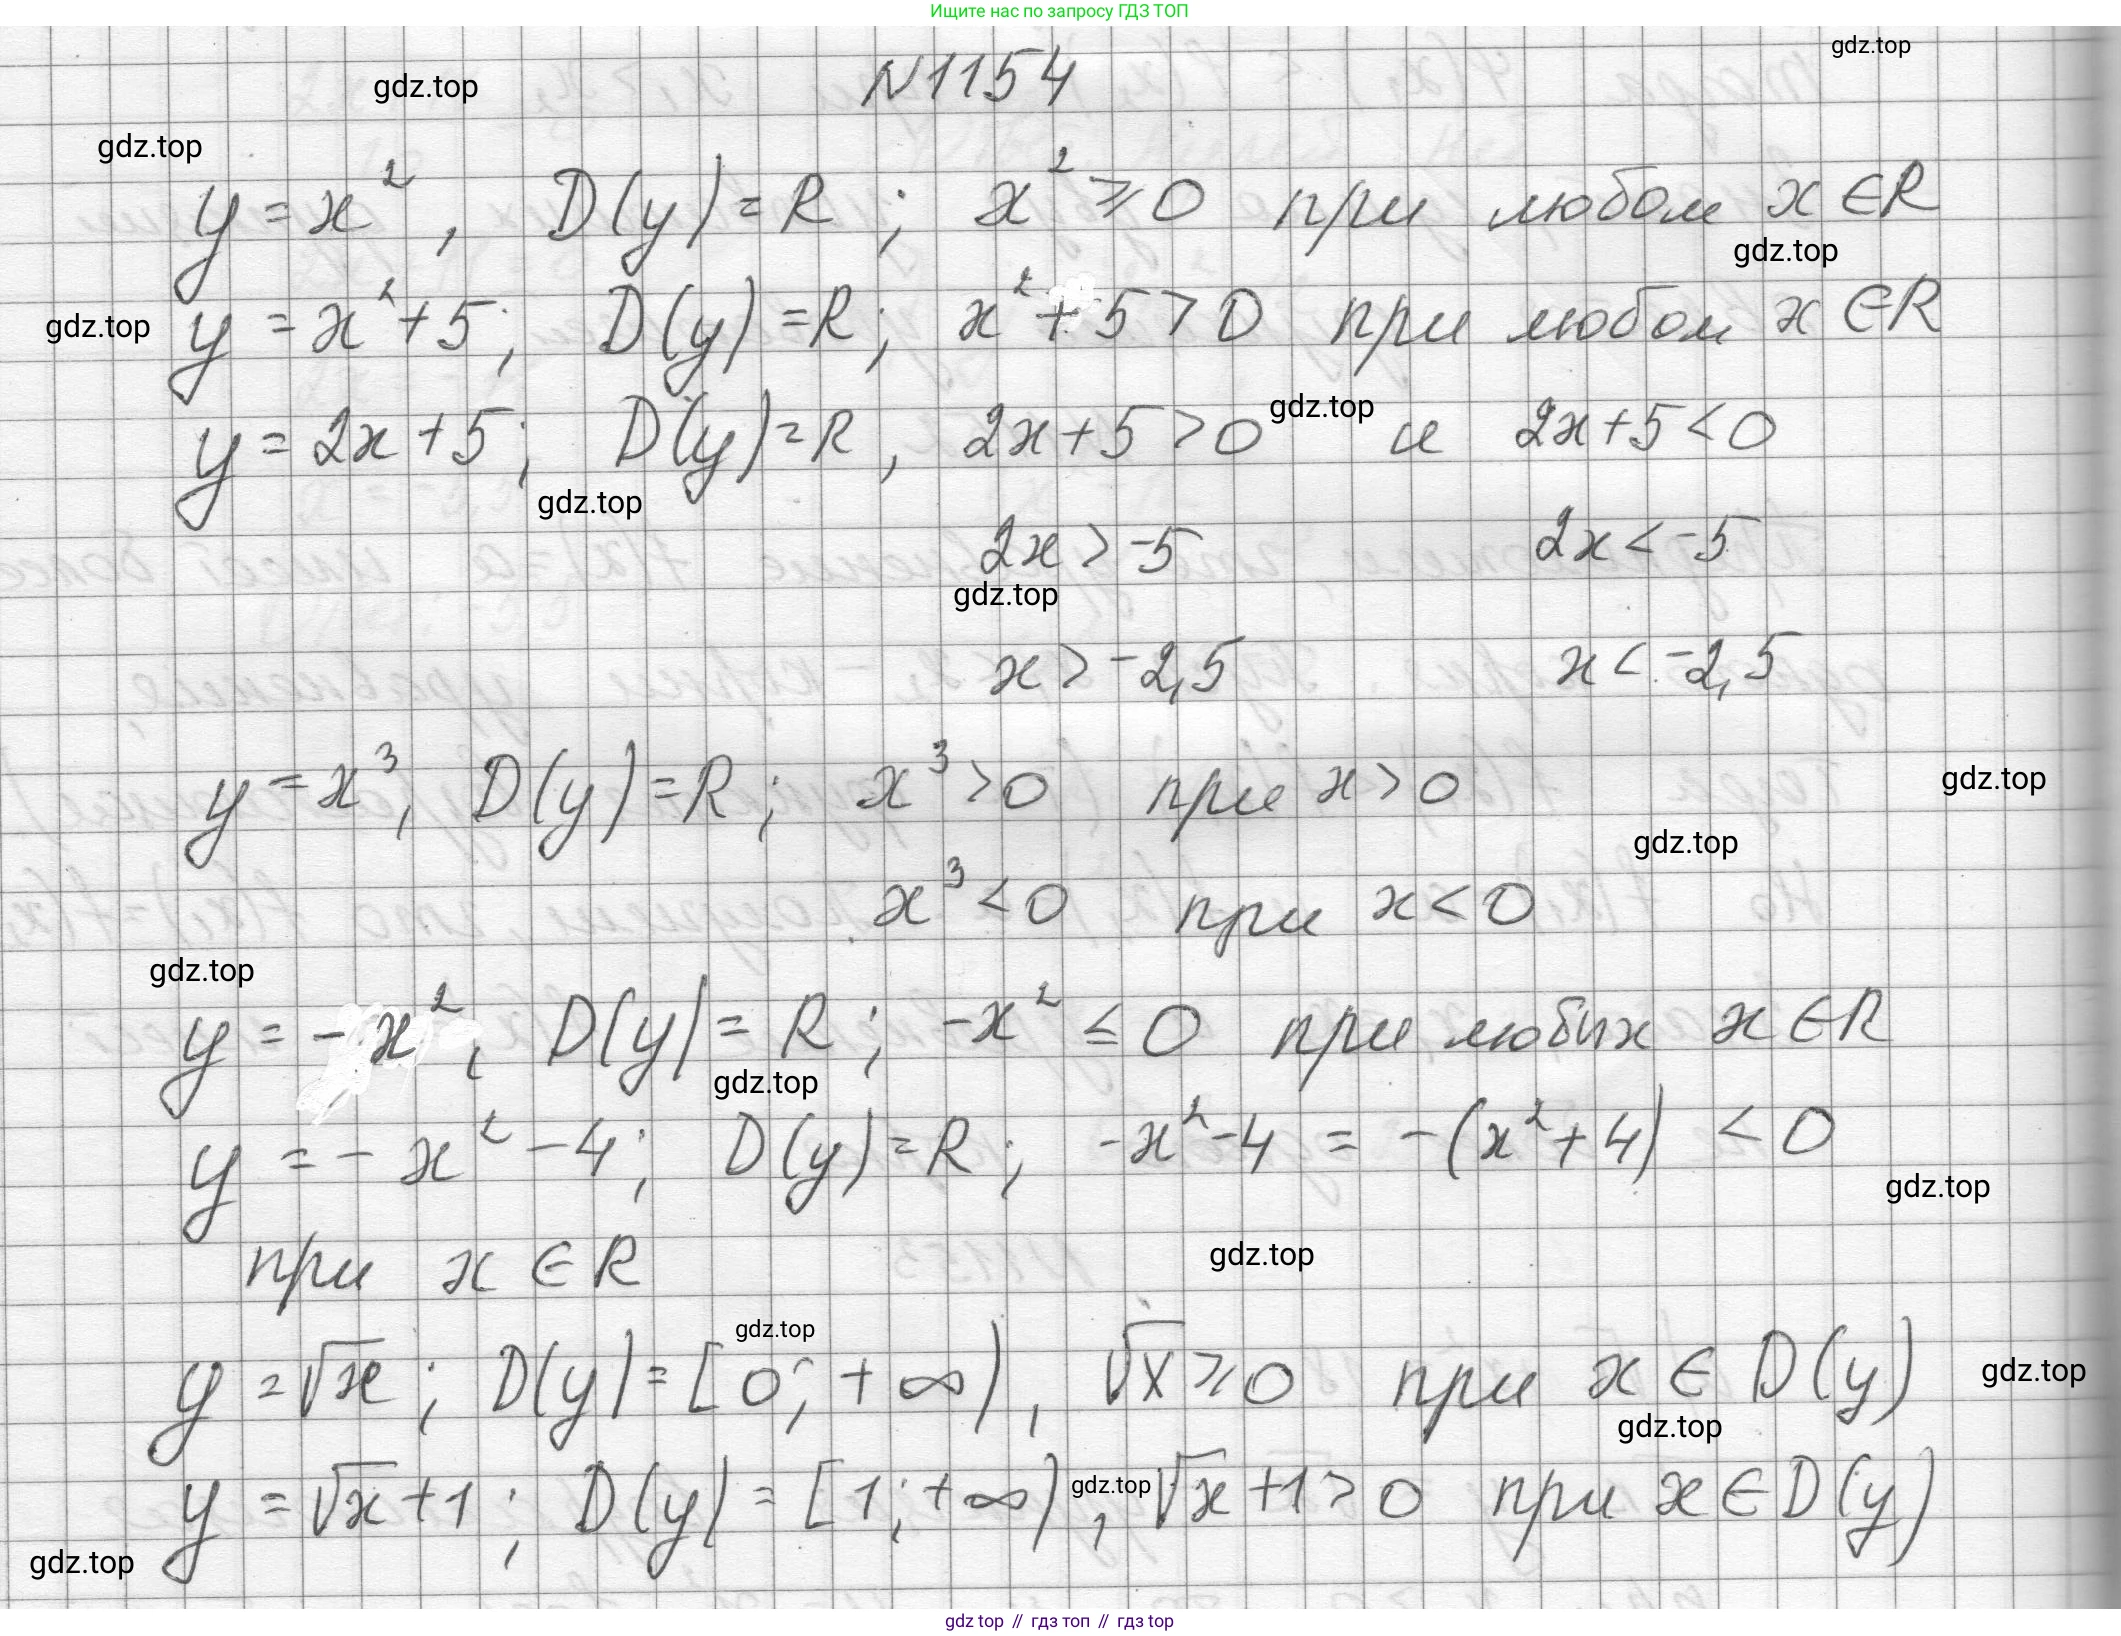 Ищите нас по запросу ГДЗ ТОП
gdz.top
N1154
gdz.top
gdz.top
y = x², D(y) = R ; x² ⩾ 0 при любом x ∈ R
gdz.top
y = x² + 5; D(y) = R; x² + 5 > 0 при любом x ∈ R
gdz.top
y = 2x + 5; D(y) = R, 2x + 5 > 0 и 2x + 5 < 0
gdz.top
gdz.top
2x > -5 2x < -5
gdz.top
x > -2,5 x < -2,5
y = x³, D(y) = R; x³ > 0 при x > 0
gdz.top
gdz.top
x³ < 0 при x < 0
gdz.top
y = -x², D(y) = R; -x² ≤ 0 при любых x ∈ R
gdz.top
y = -x² - 4; D(y) = R; -x² - 4 = -(x² + 4) < 0
gdz.top
при x ∈ R
gdz.top
gdz.top
y = √x ; D(y) = [0; +∞), √x ⩾ 0 при x ∈ D(y)
gdz.top
gdz.top
y = √x + 1; D(y) = [1; +∞), √x + 1 > 0 при x ∈ D(y)
gdz.top
gdz.top
gdz top // гдз топ // гдз top